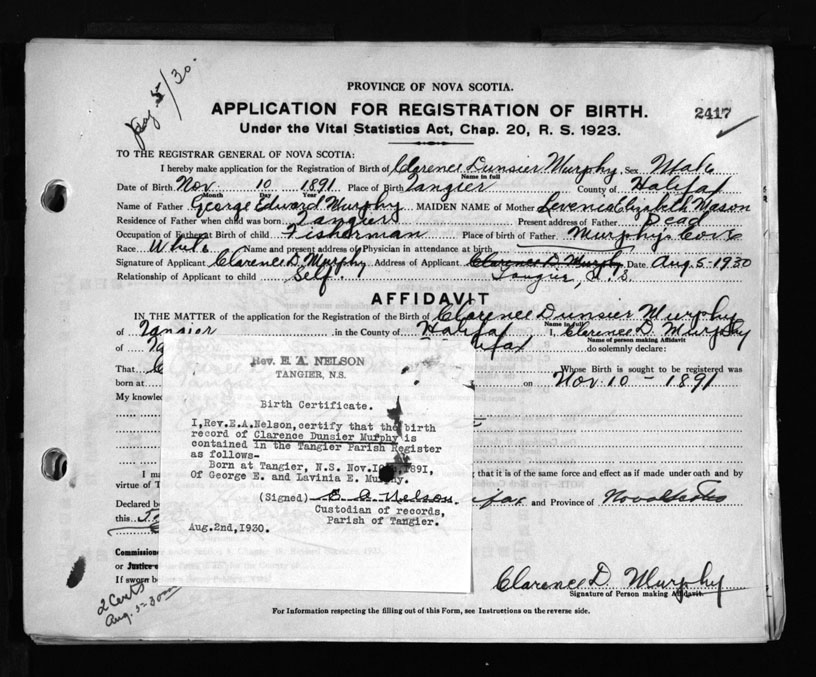 Aug. 5/30.
PROVINCE OF NOVA SCOTIA.
APPLICATION FOR REGISTRATION OF BIRTH.
2417
Under the Vital Statistics Act, Chap. 20, R. S. 1923.
TO THE REGISTRAR GENERAL OF NOVA SCOTIA:
I hereby make application for the Registration of Birth of Clarence Dunsier Murphy Sex Male
Name in full
Date of Birth Nov. 10 1891 Place of Birth Tangier County of Halifax
Month Day Year
Name of Father George Edward Murphy MAIDEN NAME of Mother Levenia Elizabeth Mason
Residence of Father when child was born Tangier Present address of Father Dead
Occupation of Father at Birth of child Fisherman Place of birth of Father Murphy's Cove
Race White Name and present address of Physician in attendance at birth
Signature of Applicant Clarence D. Murphy Address of Applicant Clarence D. Murphy Date Aug. 5-1930
Relationship of Applicant to child Self. Tangier, N. S.
AFFIDAVIT
IN THE MATTER of the application for the Registration of the Birth of Clarence Dunsier Murphy
Name in full
of Tangier in the County of Halifax I, Clarence D. Murphy
Name of person making Affidavit
of Ta ifax do solemnly declare:
That C Whose Birth is sought to be registered was
born at on Nov. 10 - 1891
My knowled
Rev. E. A. NELSON
TANGIER, N.S.
Birth Certificate.
I,Rev.E.A.Nelson,certify that the birth
record of Clarence Dunsier Murphy is
contained in the Tangier Parish Register
as follows-
Born at Tangier, N.S. Nov. 189I.
Of George E. and Lavinia E. Murphy.
(Signed) E. A. Nelson.
Custodian of records,
Parish of Tangier.
Aug.2nd,1930.
I ma ng that it is of the same force and effect as if made under oath and by
virtue of T
Declared be ifax and Province of Nova Scotia
this
Commissione
or Justice o
If sworn be
2 Certs
Aug. 5-30
Clarence D. Murphy
Signature of Person making Affidavit.
For Information respecting the filling out of this Form, see Instructions on the reverse side.